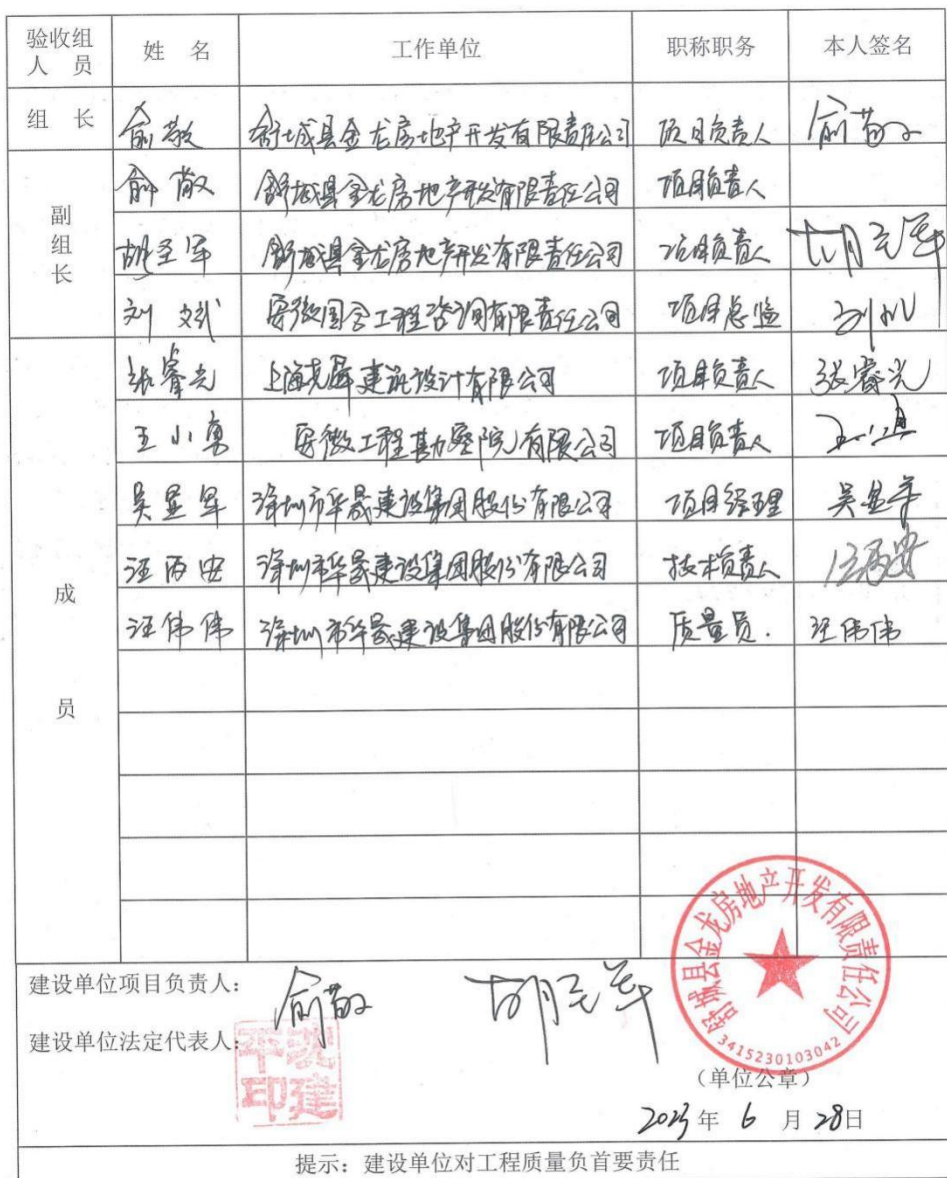 验收组人员 姓 名 工作单位 职称职务 本人签名
组 长 俞敬 舒城县金龙房地产开发有限责任公司 项目负责人 俞敬
副组长 俞敬 舒城县金龙房地产开发有限责任公司 项目负责人
胡圣军 舒城县金龙房地产开发有限责任公司 项目负责人 胡圣军
刘斌 安徽国合工程咨询有限责任公司 项目总监 刘斌
成员 张睿光 上海 建筑设计有限公司 项目负责人 张睿光
王小勇 安徽工程勘察院有限公司 项目负责人 王小勇
吴显军 深圳市华晟建设集团股份有限公司 项目经理 吴显军
汪丙安 深圳市华晟建设集团股份有限公司 技术负责人 汪丙安
汪伟伟 深圳市华晟建设集团股份有限公司 质量员. 汪伟伟
建设单位项目负责人: 俞敬 胡圣军
建设单位法定代表人:
沈建平印
舒城县金龙房地产开发有限责任公司
3415230103042
(单位公章)
2023年 6 月 28日
提示:建设单位对工程质量负首要责任